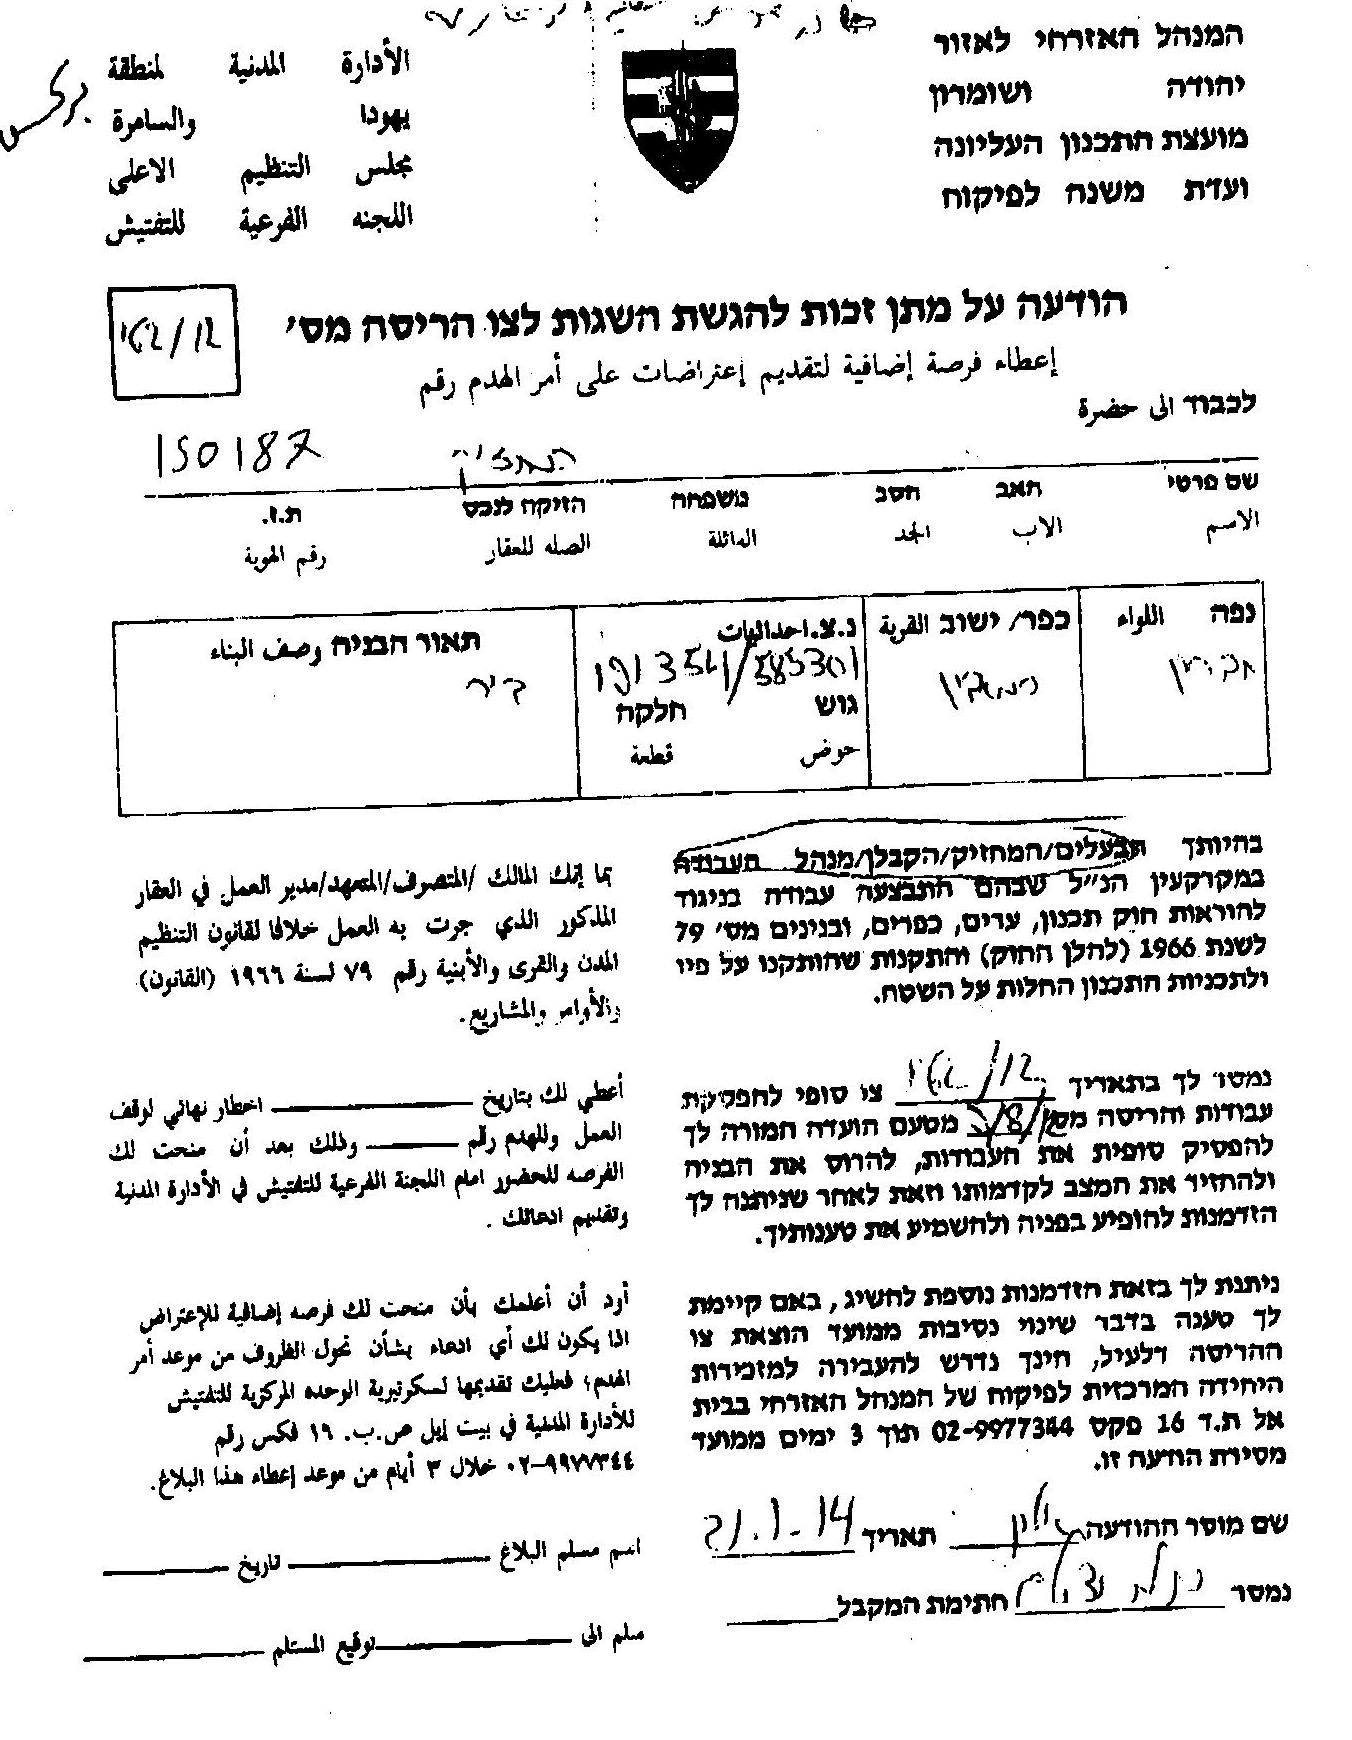 המנהל האזרחי לאזור
יהודה ושומרון
מועצת התכנון העליונה
ועדת משנה לפיקוח
الأدارة المدنية لمنطقة
يهودا والسامرة
مجلس التنظيم الاعلى
اللجنه الفرعية للتفتيش
הודעה על מתן זכות להגשת השגות לצו הריסה מס׳
إعطاء فرصة إضافية لتقديم إعتراضات على أمر الهدم رقم
לכבוד الى حضرة
150187
שם פרטי האב הסב משפחה הזיקה לנכס ת.ז.
الاسم الاب الجد العائلة الصله للعقار رقم الهوية
נפה اللواء
כפר/ ישוב القرية
נ.צ. احداثيات
גוש חלקה
حوض قطعة
תאור הבניה وصف البناء
דיר
בהיותך הבעלים/המחזיק/הקבלן/מנהל העבודה
במקרקעין הנ״ל שבהם התבצעה עבודה בניגוד
להוראות חוק תכנון, ערים, כפרים, ובנינים מס׳ 79
לשנת 1966 (להלן החוק) והתקנות שהותקנו על פיו
ולתכניות התכנון החלות על השטח.
بما إنك المالك /المتصرف/المتعهد/مدير العمل في العقار
المذكور الذي جرت به العمل خلافا لقانون التنظيم
المدن والقرى والأبنية رقم ٧٩ لسنة ١٩٦٦ (القانون)
والأوامر والمشاريع.
נמסר לך בתאריך צו סופי להפסקת
עבודות והריסה מס׳ מטעם הועדה חמורה לך
להפסיק סופית את העבודות, להרוס את הבניה
ולהחזיר את המצב לקדמותו וזאת לאחר שניתנה לך
הזדמנות להופיע בפניה ולהשמיע את טענותיך.
أعطي لك بتاريخ اخطار نهائي لوقف
العمل وللهدم رقم وذلك بعد أن منحت لك
الفرصه للحضور امام اللجنة الفرعية للتفتيش في الأدارة المدنية
وتقديم ادعائك .
ניתנת לך בזאת הזדמנות נוספת להשיג, באם קיימת
לך טענה בדבר שינוי נסיבות ממועד הוצאת צו
ההריסה דלעיל, הינך נדרש להעבירה למזכירות
היחידה המרכזית לפיקוח של המנהל האזרחי בבית
אל ת.ד 16 פקס 02-9977344 תוך 3 ימים ממועד
מסירת הודעה זו.
أود أن أعلمك بأن منحت لك فرصه إضافية للإعتراض
اذا يكون لك أي ادعاء بشأن تحول الظروف من موعد أمر
الهدم؛ فعليك تقديمها لسكرتيرية الوحده المركزية للتفتيش
للأدارة المدنية في بيت إيل ص.ب. ١٦ فكس رقم
٠٢-٩٩٧٧٣٤٤ خلال ٣ أيام من موعد إعطاء هذا البلاغ.
שם מוסר ההודעה תאריך 21.1.14
נמסר חתימת המקבל
اسم مسلم البلاغ تاريخ
سلم الى توقيع المستلم